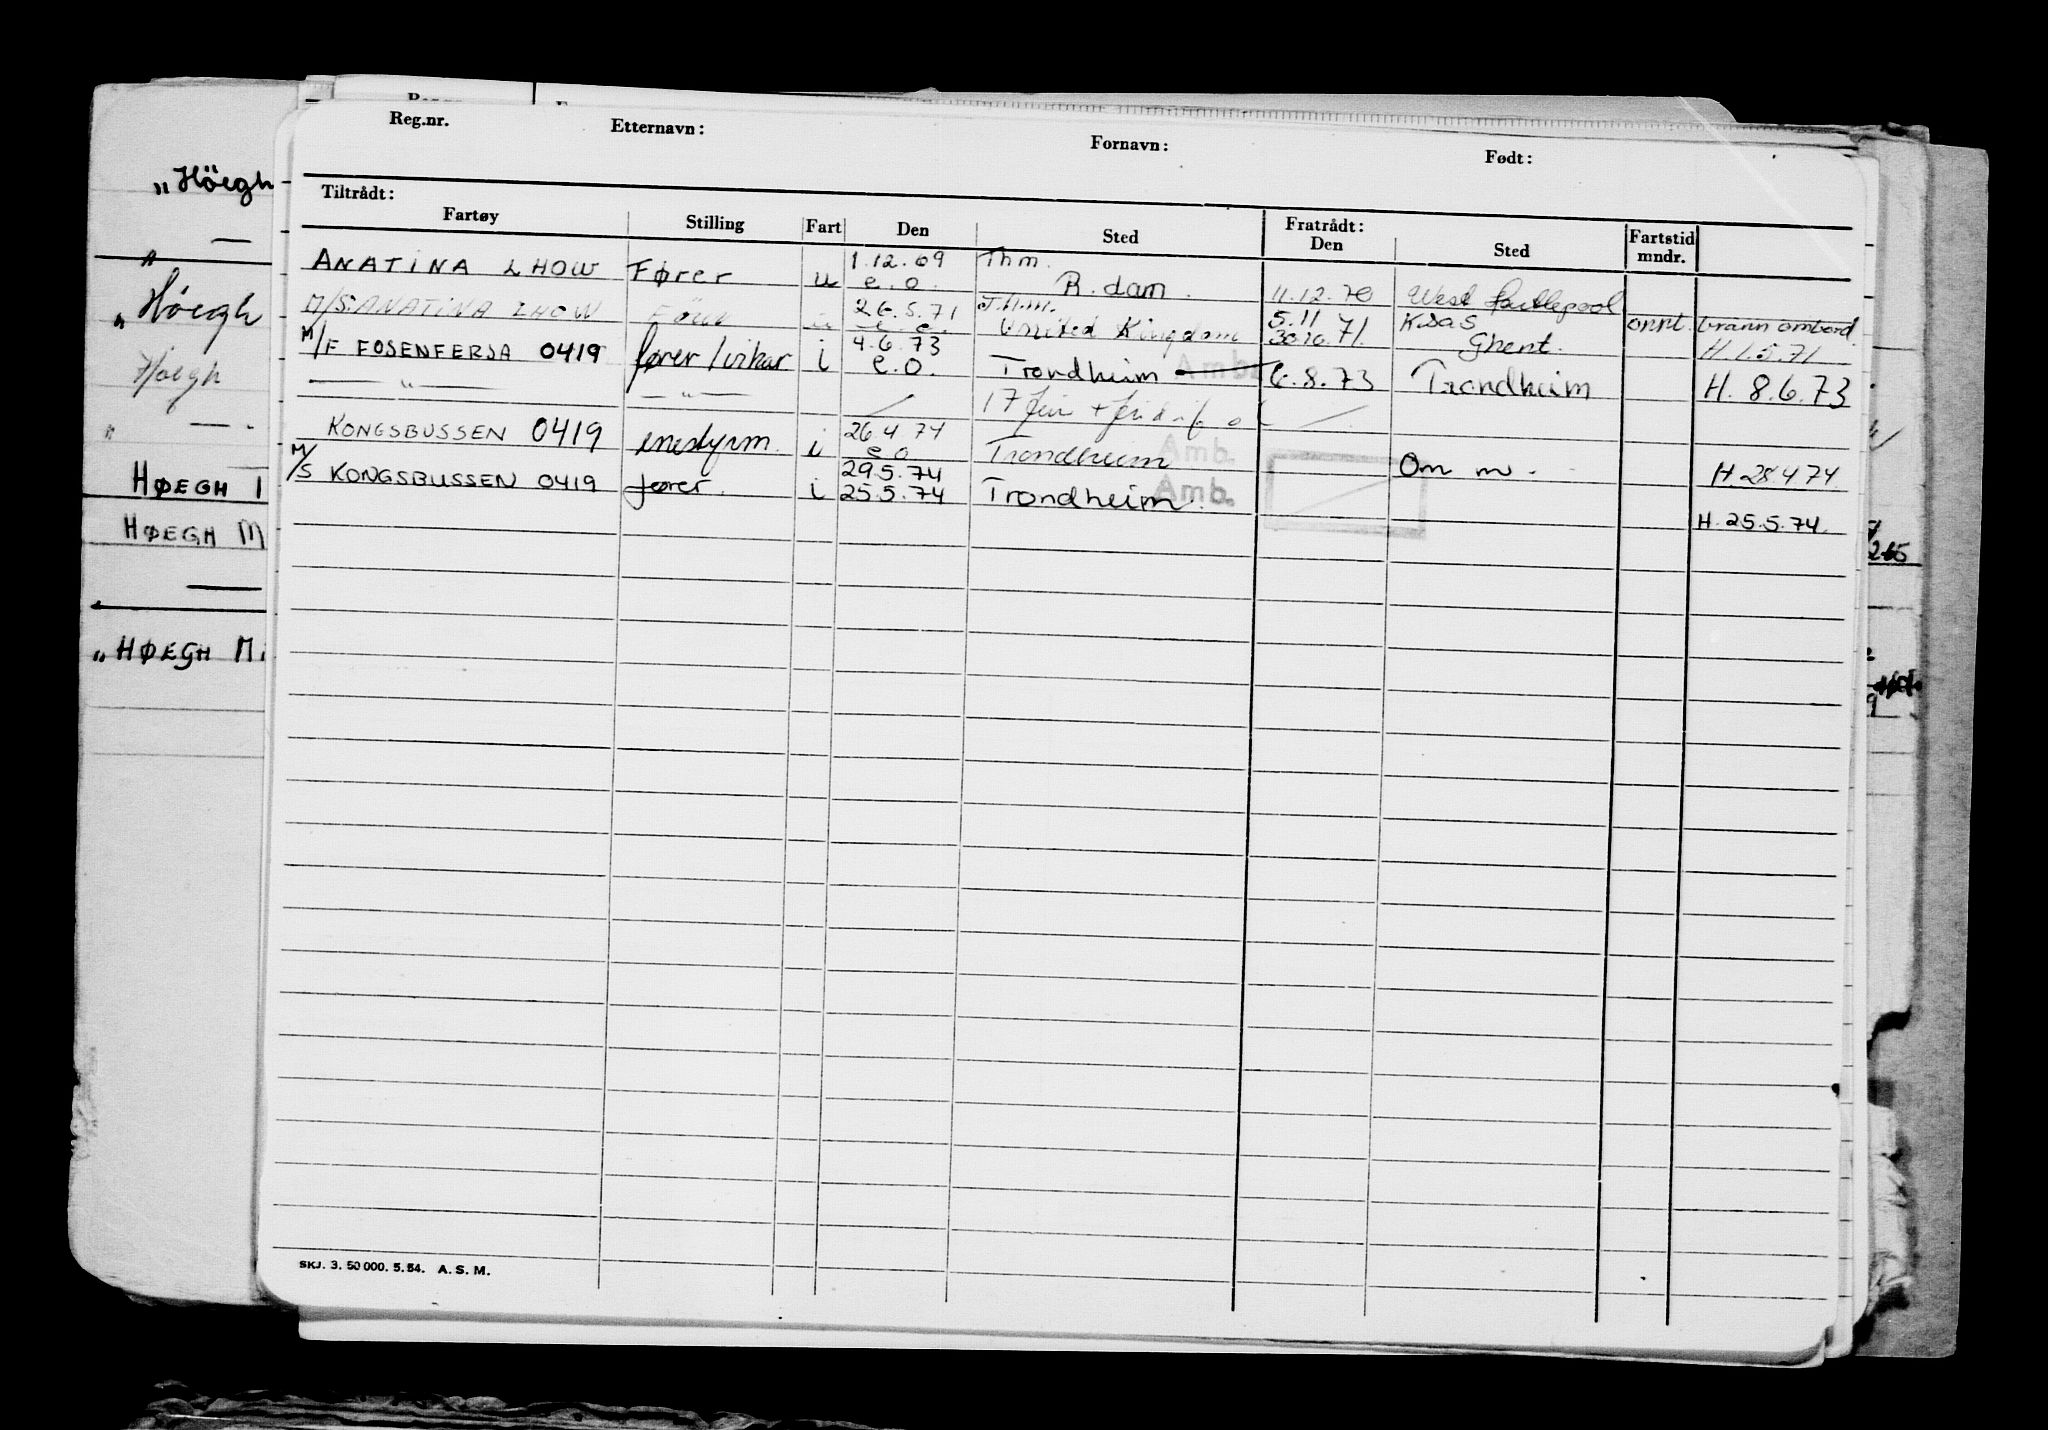 Reg.nr. Etternavn: Fornavn: Født:
Tiltrådt: Fratrådt:
Fartøy Stilling Fart Den Sted Den Sted Fartstid mndr.
ANATINA LHOW Fører u 1.12.69 Thm.
e.o. R.dam. 11.12.70 West Hartlepool
M/S ANATINA LHOW u 26.5.71 T.h.m. 5.11 Ksas omt. brann ombord
e.o. United Kingdom 30.10.71. Ghent. H.1.5.71
M/F FOSENFERJA 0419 fører/vikar i 4.6.73
e.o. Trondheim Amb. 6.8.73 Trondheim H. 8.6.73
— " — — " — 17
KONGSBUSSEN 0419 enestyrm. i 26 4 74
e o Trondheim Amb. H.28.4.74.
M/S KONGSBUSSEN 0419 fører. i 29.5.74 Om m.
25.5.74 Trondheim. Amb. H.25.5.74.
SKJ. 3. 50 000. 5. 54. A. S. M.
"Höegh
—
"
"Höegh
Höegh
" — .
HØEGH I
HØEGH M
—
"HØEGH Mi
265
9